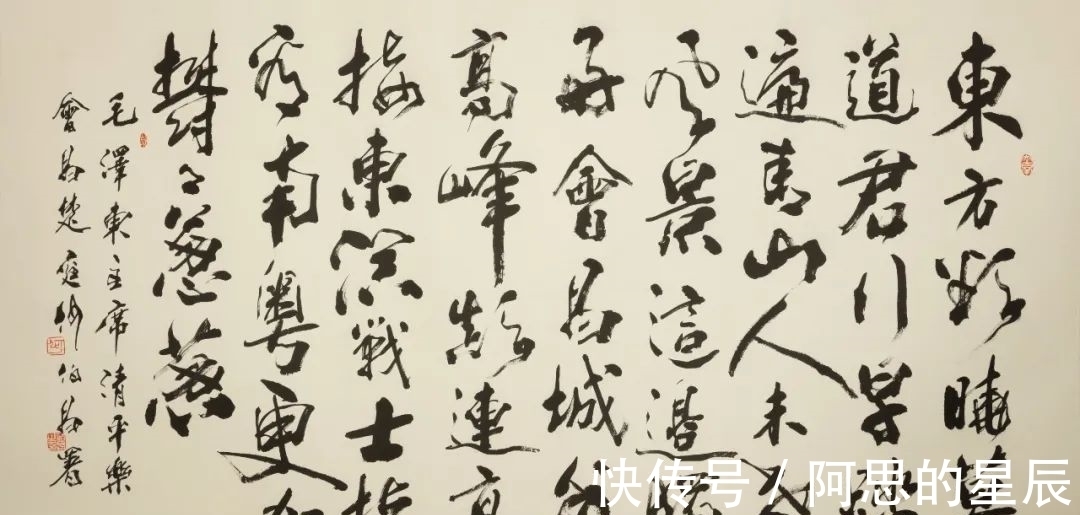 東方欲曉莫
道君行早踏
遍青山人未老
風景這邊獨
好會昌城外
高峰顛連直
接東溟戰士指
看南粵更加
鬱々葱葱
毛澤東主席清平樂
會昌楚庭
快传号 / 阿思的星辰